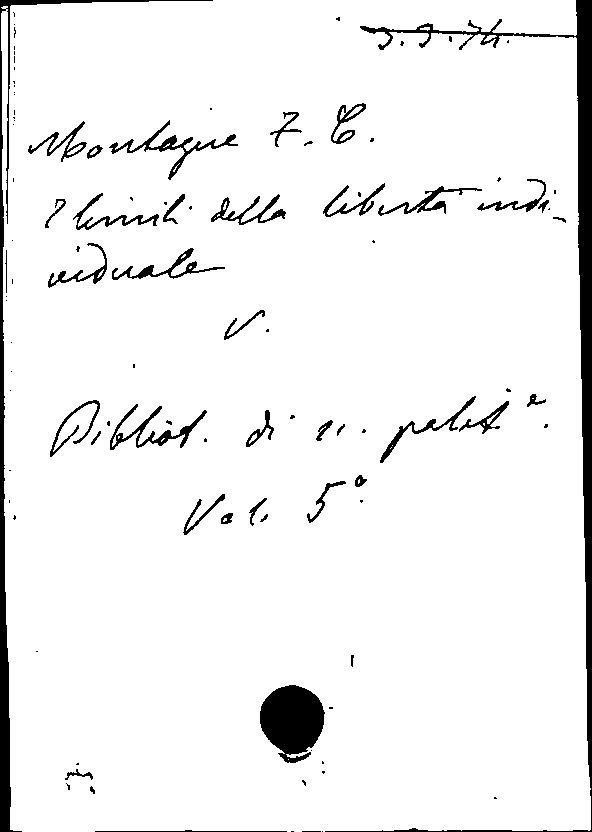 3.3.74.
Montague F. C.
I limiti della libertà indi-
viduale
V.
Bibliot. di s. polit.e
Vol. 5°